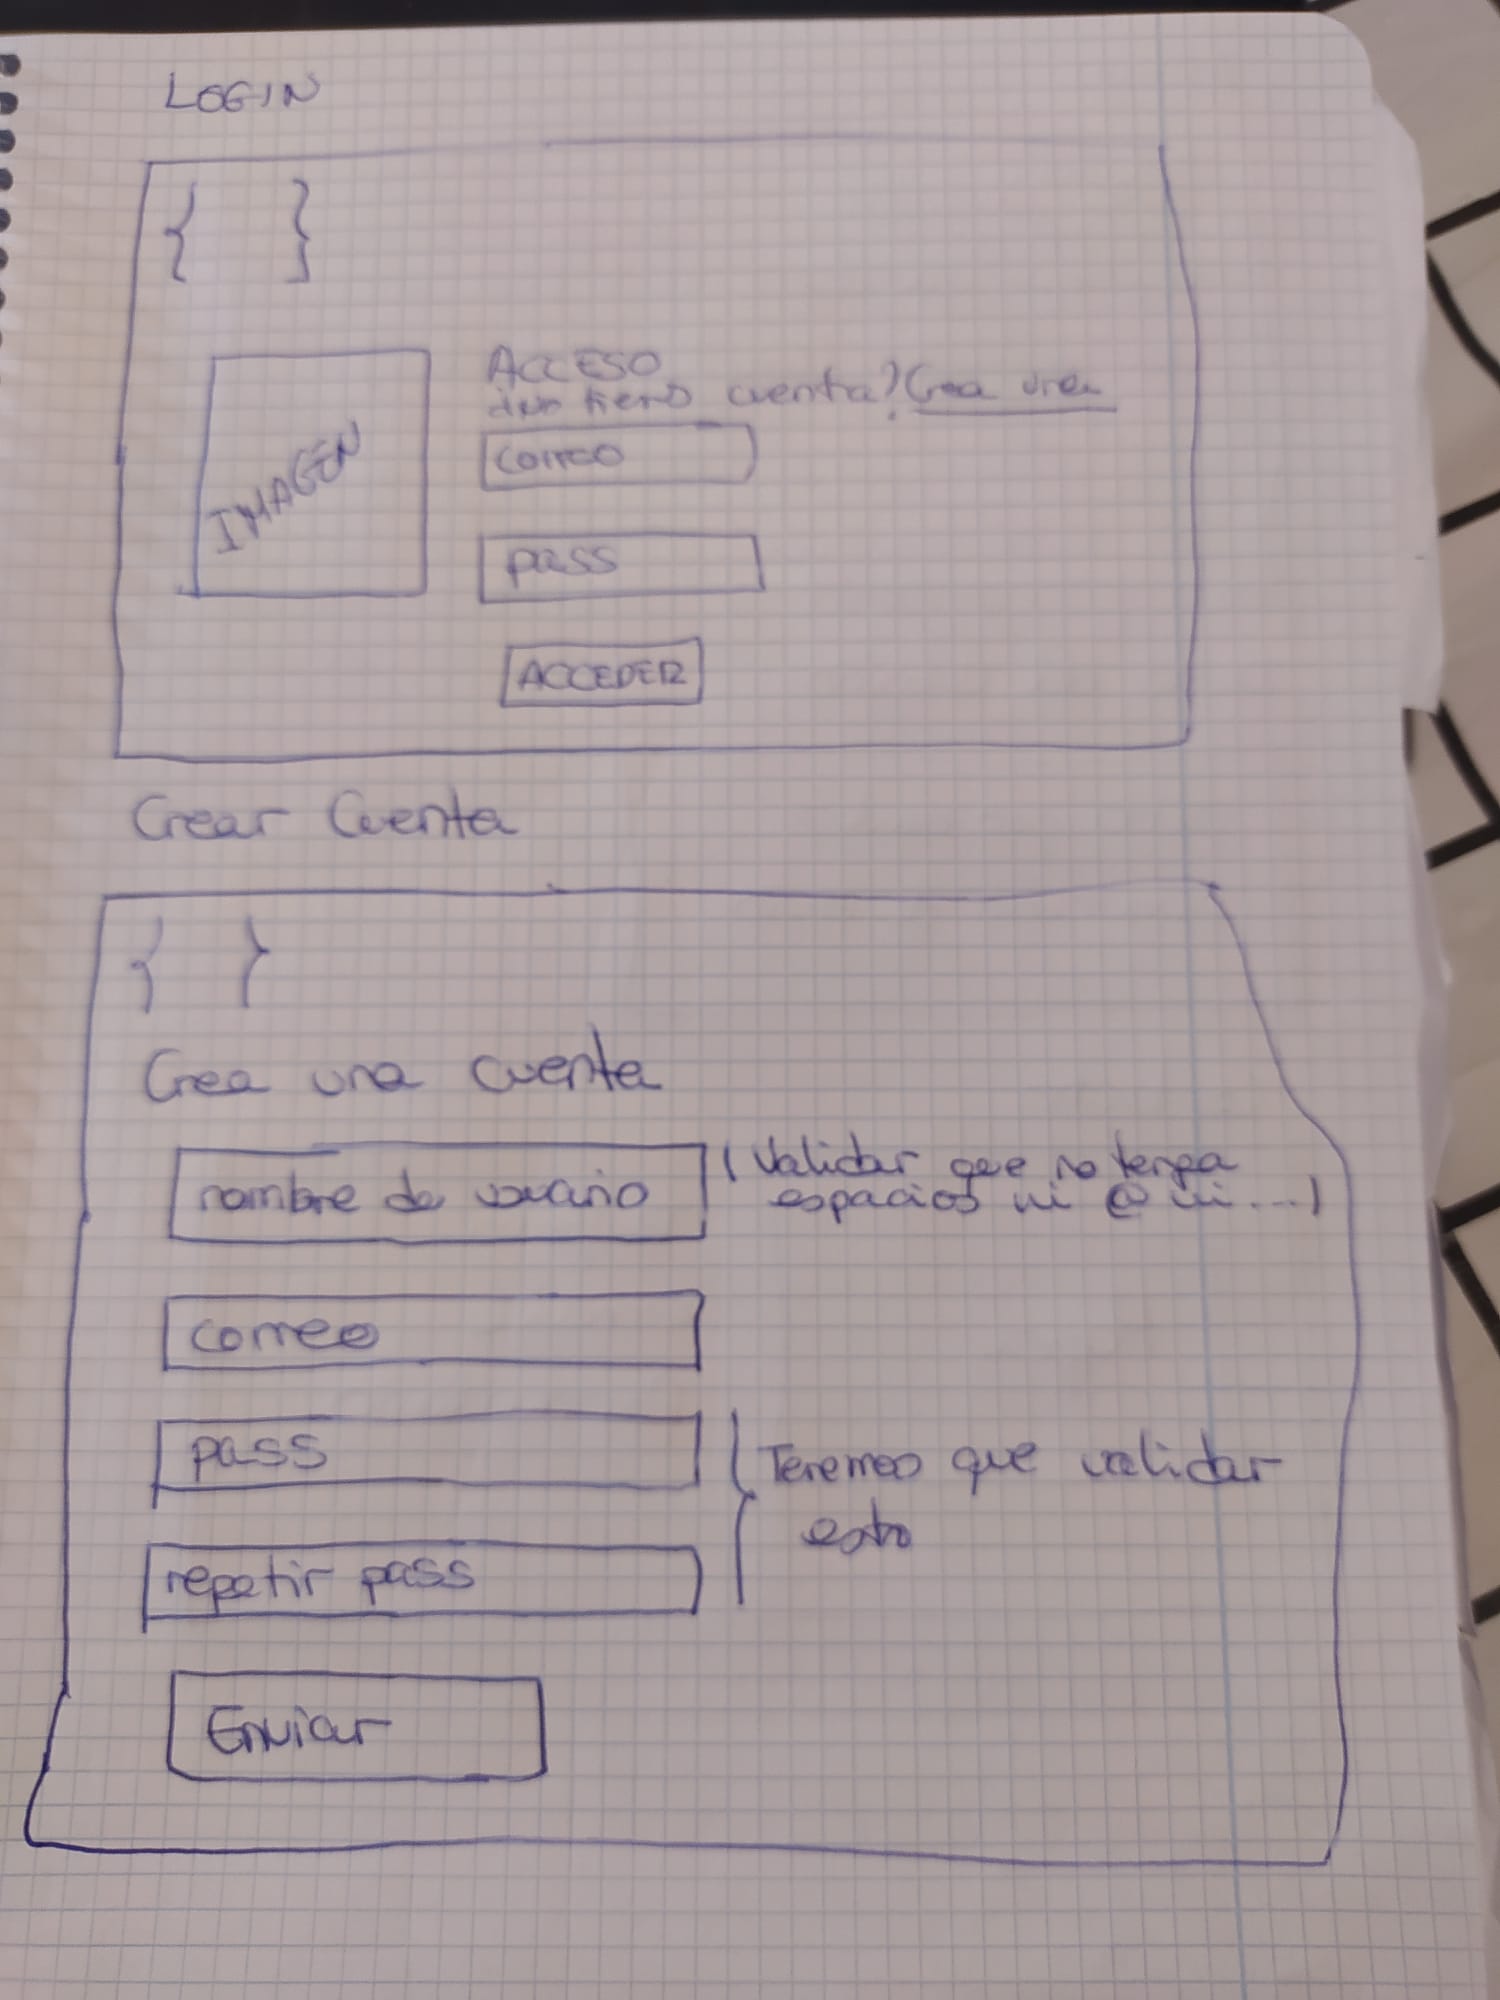 LOGIN
{ }
IMAGEN
ACCESO
¿no tienes cuenta? Crea una
correo
pass
ACCEDER
Crear Cuenta
{ }
Crea una cuenta
nombre de usuario
(Validar que no tenga
espacios ni @ ni...)
correo
pass
Tenemos que validar
esto
repetir pass
Enviar